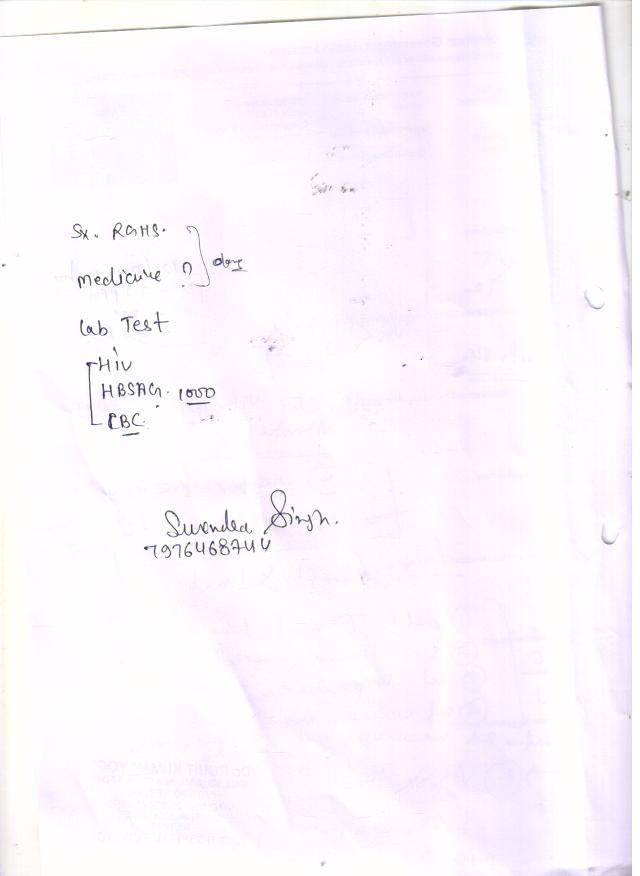 Sx. RGHS.
medicine
Lab Test
HIV
HBSAG. 1000
CBC.
Surendra Singh.
7976468744